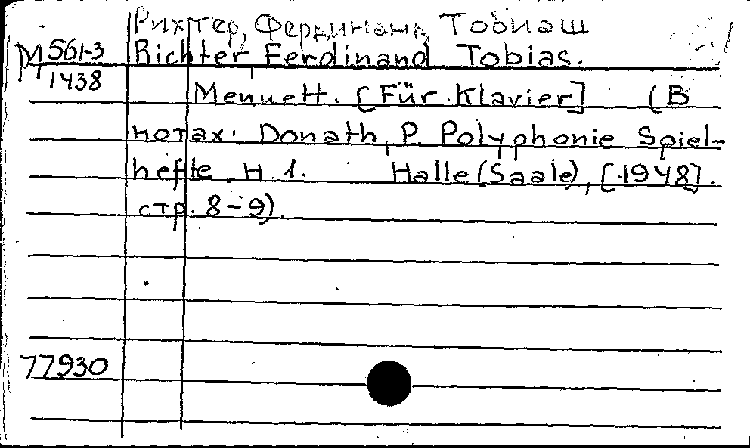 Рихтер, Фердинанд Тобиаш
М 561-3 Richter Ferdinand Tobias.
1438
Menuett. [Für Klavier] (В
нотах: Donath, P. Polyphonie Spiel-
hefte H 1. Halle (Saale), [1948].
стр. 8-9).
77930